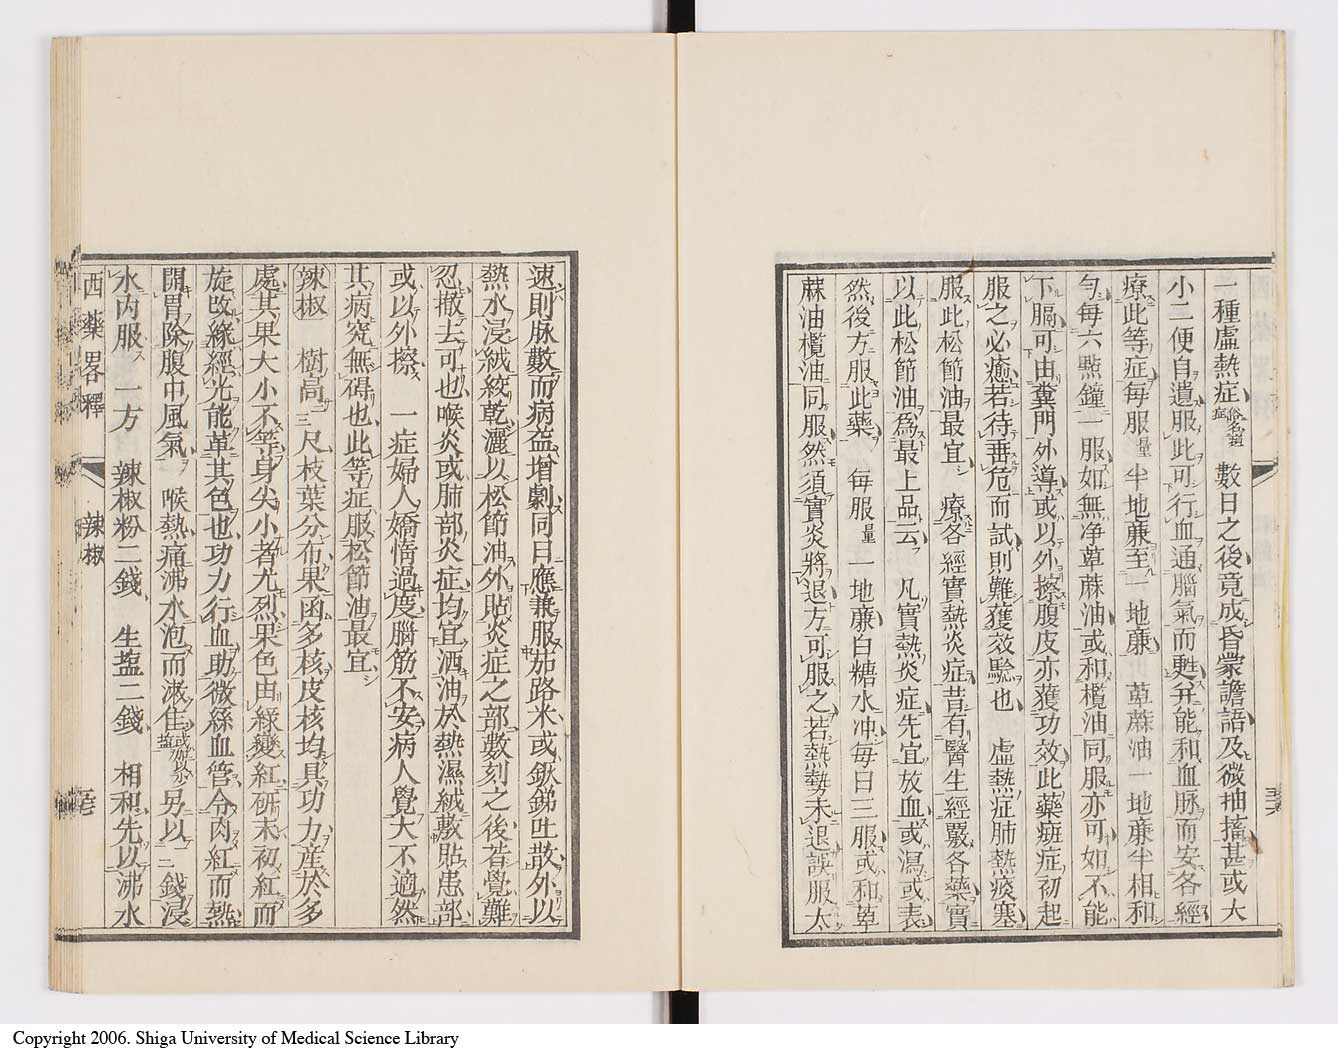 一種虛熱症 數日之後竟成昏蒙譫語及微抽搐甚或大
小二便自遺服此可行血通腦氣而甦幷能和血脉而安各經
療此等症每服量半地亷至一地亷 萆蔴油一地亷半相和
勻每六㸃鐘一服如無净萆蔴油或和欖油同服亦可如不能
下膈可由糞門外導或以外擦腹皮亦獲功效此藥斑症初起
服之必癒若待垂危而試則難獲效驗也 虛熱症肺熱痰塞
服此松節油最宜 療各經實熱炎症昔有醫生經覈各藥實
以此松節油爲最上品云 凡實熱炎症先宜放血或瀉或表
然後方服此藥 每服量一地亷白糖水冲每日三服或和萆
蔴油欖油同服然須實炎將退方可服之若熱勢未退誤服太
速則脉數而病益增劇同日應兼服茄路米或鍬銻吐散外以
熱水浸絨絞乾灑以松節油外貼炎症之部數刻之後若覺難
忍撤去可也喉炎或肺部炎症均宜洒油於熱濕絨敷貼患部
或以外擦 一症婦人嬌惰過度腦筋不安病人覺大不適然
其病究無碍也此等症服松節油最宜
辣椒 樹高二三尺枝葉分布果函多核皮核均具功力産於多
處其果大小不等身尖小者尤烈果色由綠變紅研末初紅而
旋改緣經光能革其色也功力行血助微絲血管令肉紅而熱
開胃除腹中風氣 喉熱痛沸水泡而漱 另以二錢浸
水內服 一方 辣椒粉二錢 生鹽二錢 相和先以沸水
西藥畧釋
辣椒